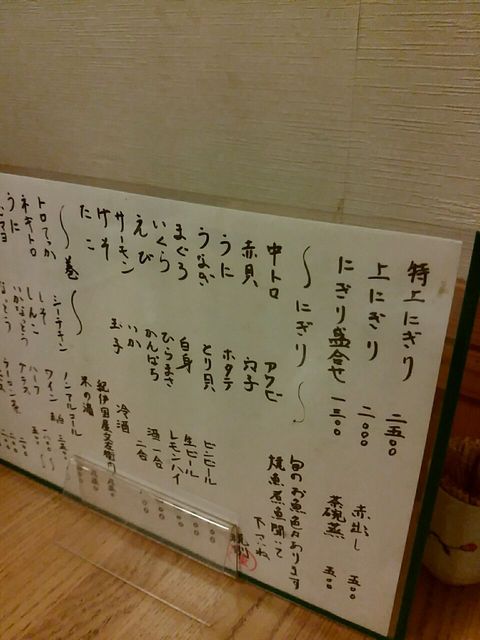 特上にぎり 二五〇〇
上にぎり 二〇〇〇
にぎり盛合せ 一三〇〇
赤出し 五〇〇
茶碗蒸 五〇〇
〜にぎり〜
旬のお魚色々あります
焼魚煮魚聞いて
下さいね
中トロ
赤貝
うに
うなぎ
まぐろ
いくら
えび
サーモン
げそ
たこ
アワビ
穴子
ホタテ
とり貝
白身
ひらまさ
かんぱち
いか
玉子
ビンビール
生ビール
レモンハイ
酒一合
二合
冷酒
紀伊国屋文左衛門
木の滴
ノンアルコール
ワイン
ハーフ
グラス
〜巻〜
トロてっか
ネギトロ
うに
シーチキン
しそ
しんこ
いかなっとう